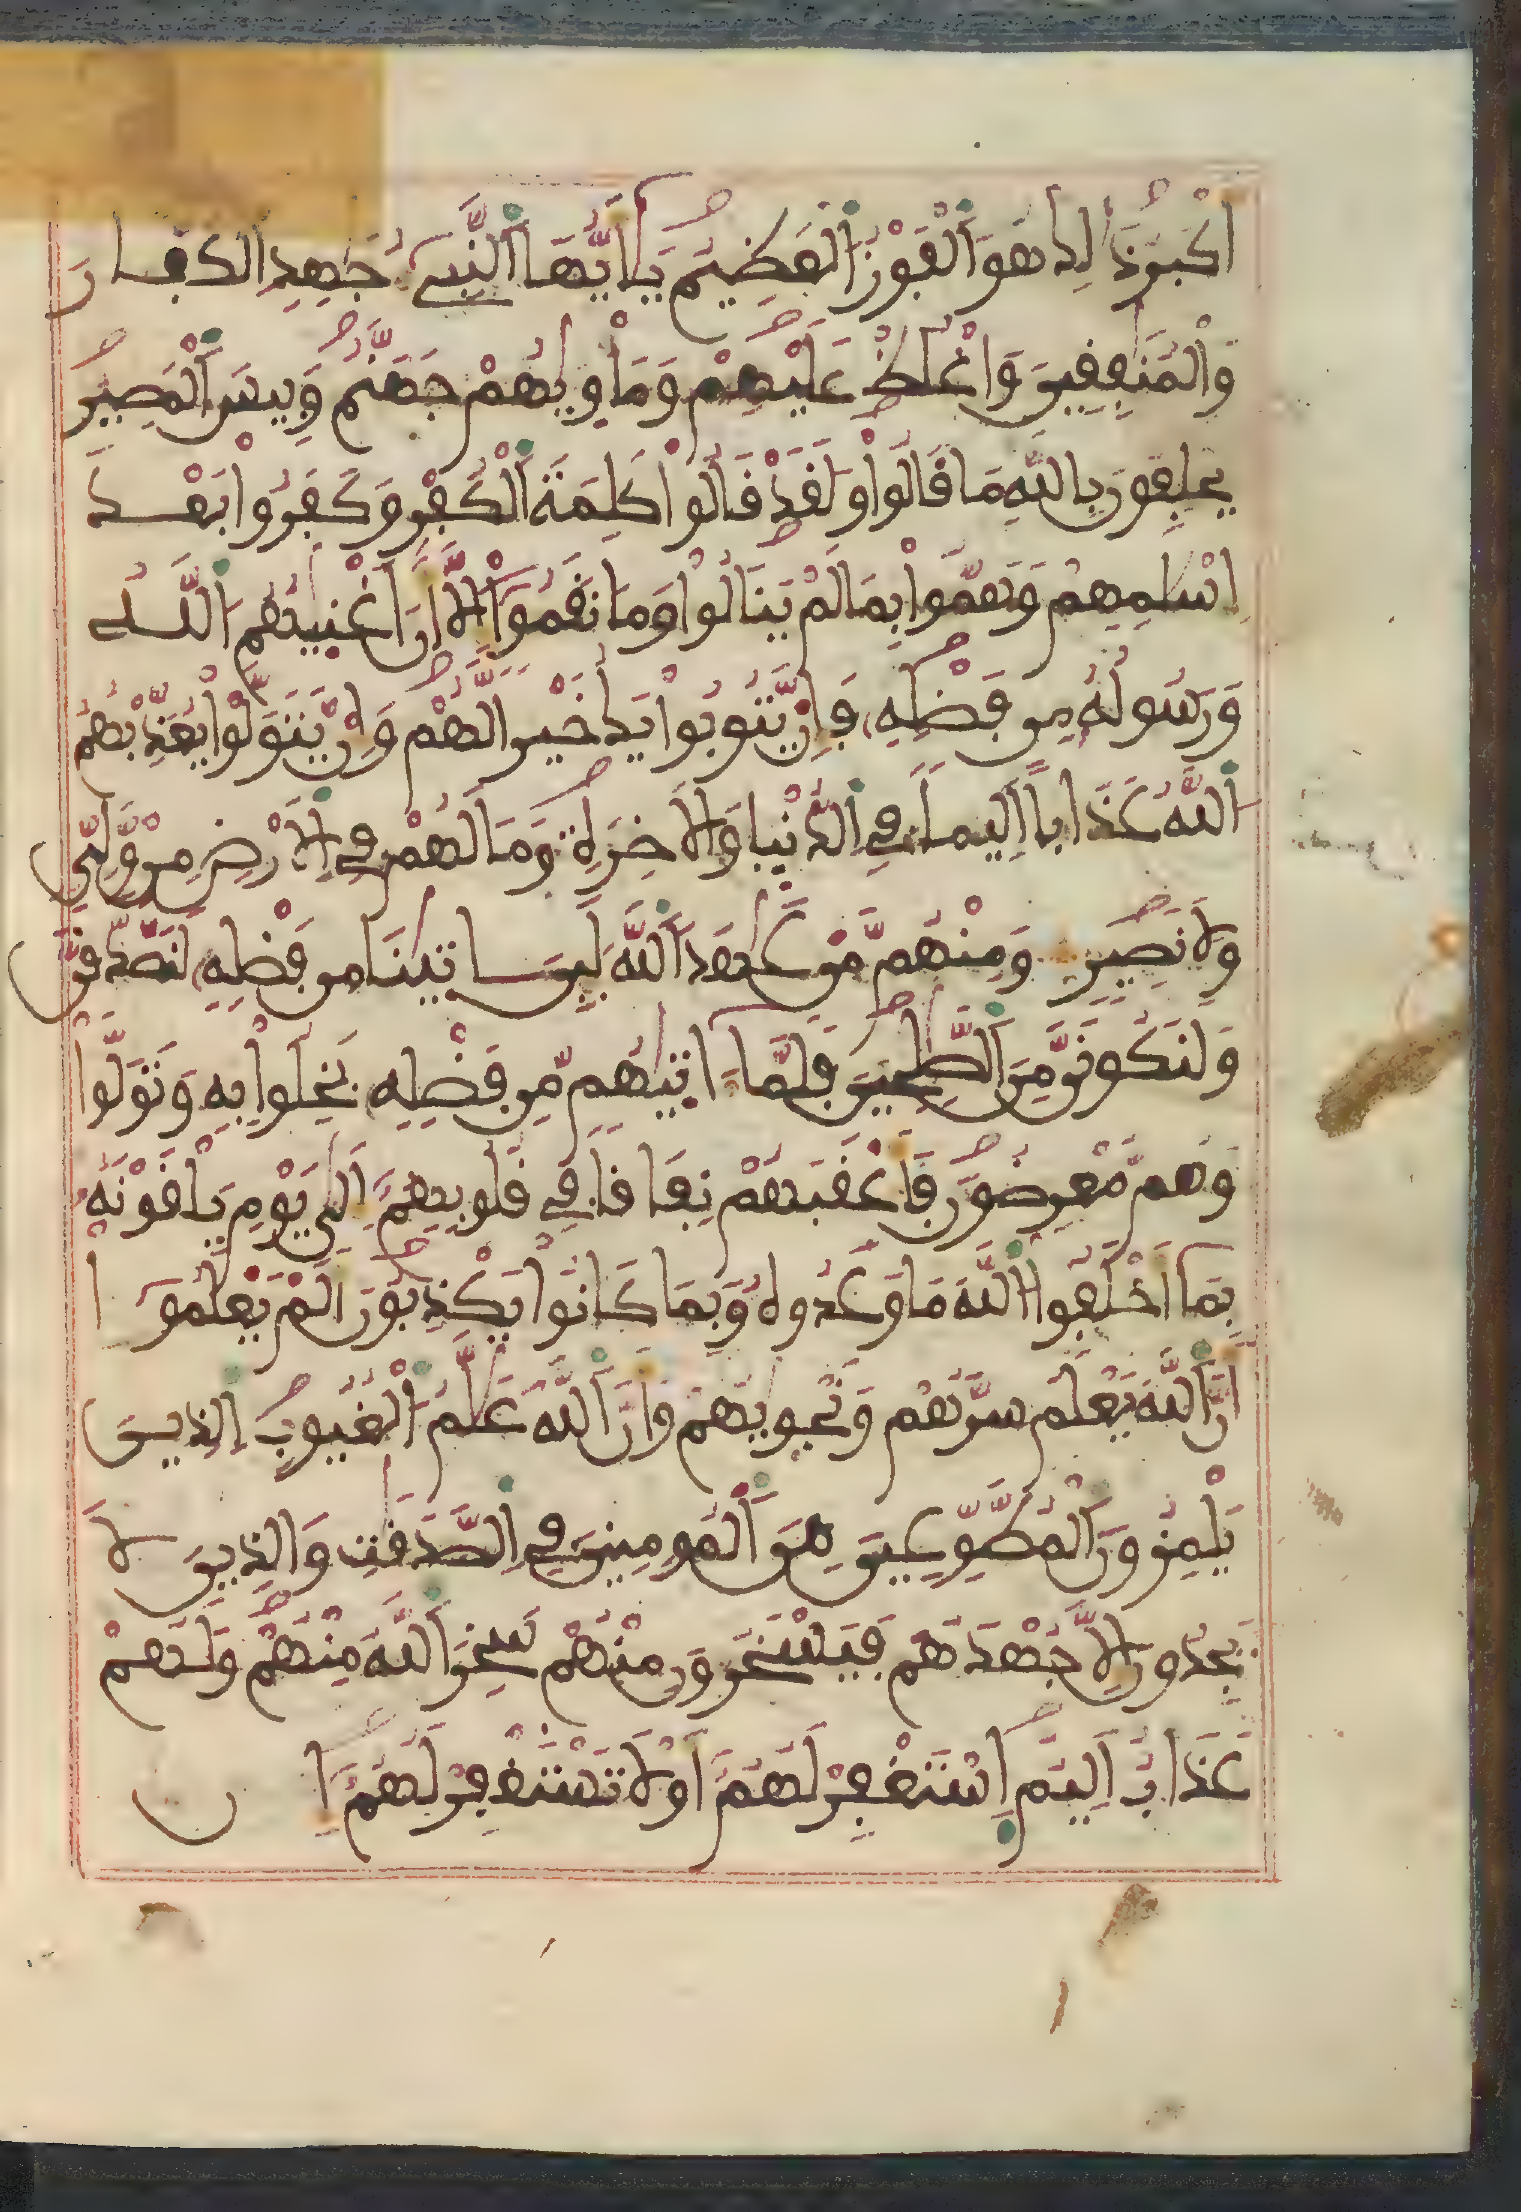 اَكْبَرُ ذَٰلِكَ هُوَ اَ۬لْفَوْزُ اُ۬لْعَظِيمُ يَٰٓأَيُّهَا اَ۬لنَّبِيٓءُ جَٰهِدِ اِ۬لْكُفَّارَ
وَالْمُنَٰفِقِينَ وَاغْلُظْ عَلَيْهِمْ وَمَأْوِيٰهُمْ جَهَنَّمُ وَبِيسَ اَ۬لْمَصِيرُ
يَحْلِفُونَ بِاللَّهِ مَا قَالُواْ وَلَقَدْ قَالُواْ كَلِمَةَ اَ۬لْكُفْرِ وَكَفَرُواْ بَعْدَ
إِسْلَٰمِهِمْ وَهَمُّواْ بِمَا لَمْ يَنَالُواْ وَمَا نَقَمُوٓاْ إِلَّآ أَنَ اَغْنِيٰهُمُ اُ۬للَّهُ
وَرَسُولُهُ مِن فَضْلِهِ فَإِنْ يَّتُوبُواْ يَكُ خَيْراً لَّهُمْ وَإِنْ يَّتَوَلَّوْاْ يُعَذِّبْهُمُ
اُ۬للَّهُ عَذَاباً اَلِيماً فِي اِ۬لدُّنْيا وَالَاخِرَةِ وَمَا لَهُمْ فِي اِ۬لَارْضِ مِنْ وَّلِيٍّ
وَلَا نَصِيرٍ وَمِنْهُم مَّنْ عَٰهَدَ اَ۬للَّهَ لَئِنَ اتيٰنَا مِن فَضْلِهِ لَنَصَّدَّقَنَّ
وَلَنَكُونَنَّ مِنَ اَ۬لصَّٰلِحِينَ فَلَمَّآ ءَاتيٰهُم مِّن فَضْلِهِ بَخِلُواْ بِهِ وَتَوَلَّواْ
وَهُم مُّعْرِضُونَ فَأَعْقَبَهُمْ نِفَاقاً فِي قُلُوبِهِمُ إِلَىٰ يَوْمِ يَلْقَوْنَهُ
بِمَآ أَخْلَفُواْ اُ۬للَّهَ مَا وَعَدُوهُ وَبِمَا كَانُواْ يَكْذِبُونَ أَلَمْ يَعْلَمُوٓاْ
أَنَّ اَ۬للَّهَ يَعْلَمُ سِرَّهُمْ وَنَجْوِيٰهُمْ وَأَنَّ اَ۬للَّهَ عَلَّٰمُ اُ۬لْغُيُوبِ اِ۬لذِينَ
يَلْمِزُونَ اَ۬لْمُطَّوِّعِينَ مِنَ اَ۬لْمُومِنِينَ فِي اِ۬لصَّدَقَٰتِ وَالذِينَ لَا
يَجِدُونَ إِلَّا جُهْدَهُمْ فَيَسْخَرُونَ مِنْهُمْ سَخِرَ اَ۬للَّهُ مِنْهُمْ وَلَهُمْ
عَذَابٌ اَلِيمٌ اِ۪سْتَغْفِرْ لَهُمُ أَوْ لَا تَسْتَغْفِرْ لَهُمُ إِن